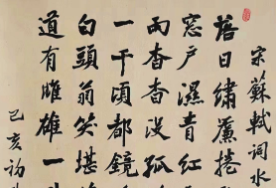 宋蘇軾詞水
落日繡簾捲
窓户濕青紅
雨杳杳没孤
一千頃都鏡
白頭翁笑堪
道有雌雄一
己亥初